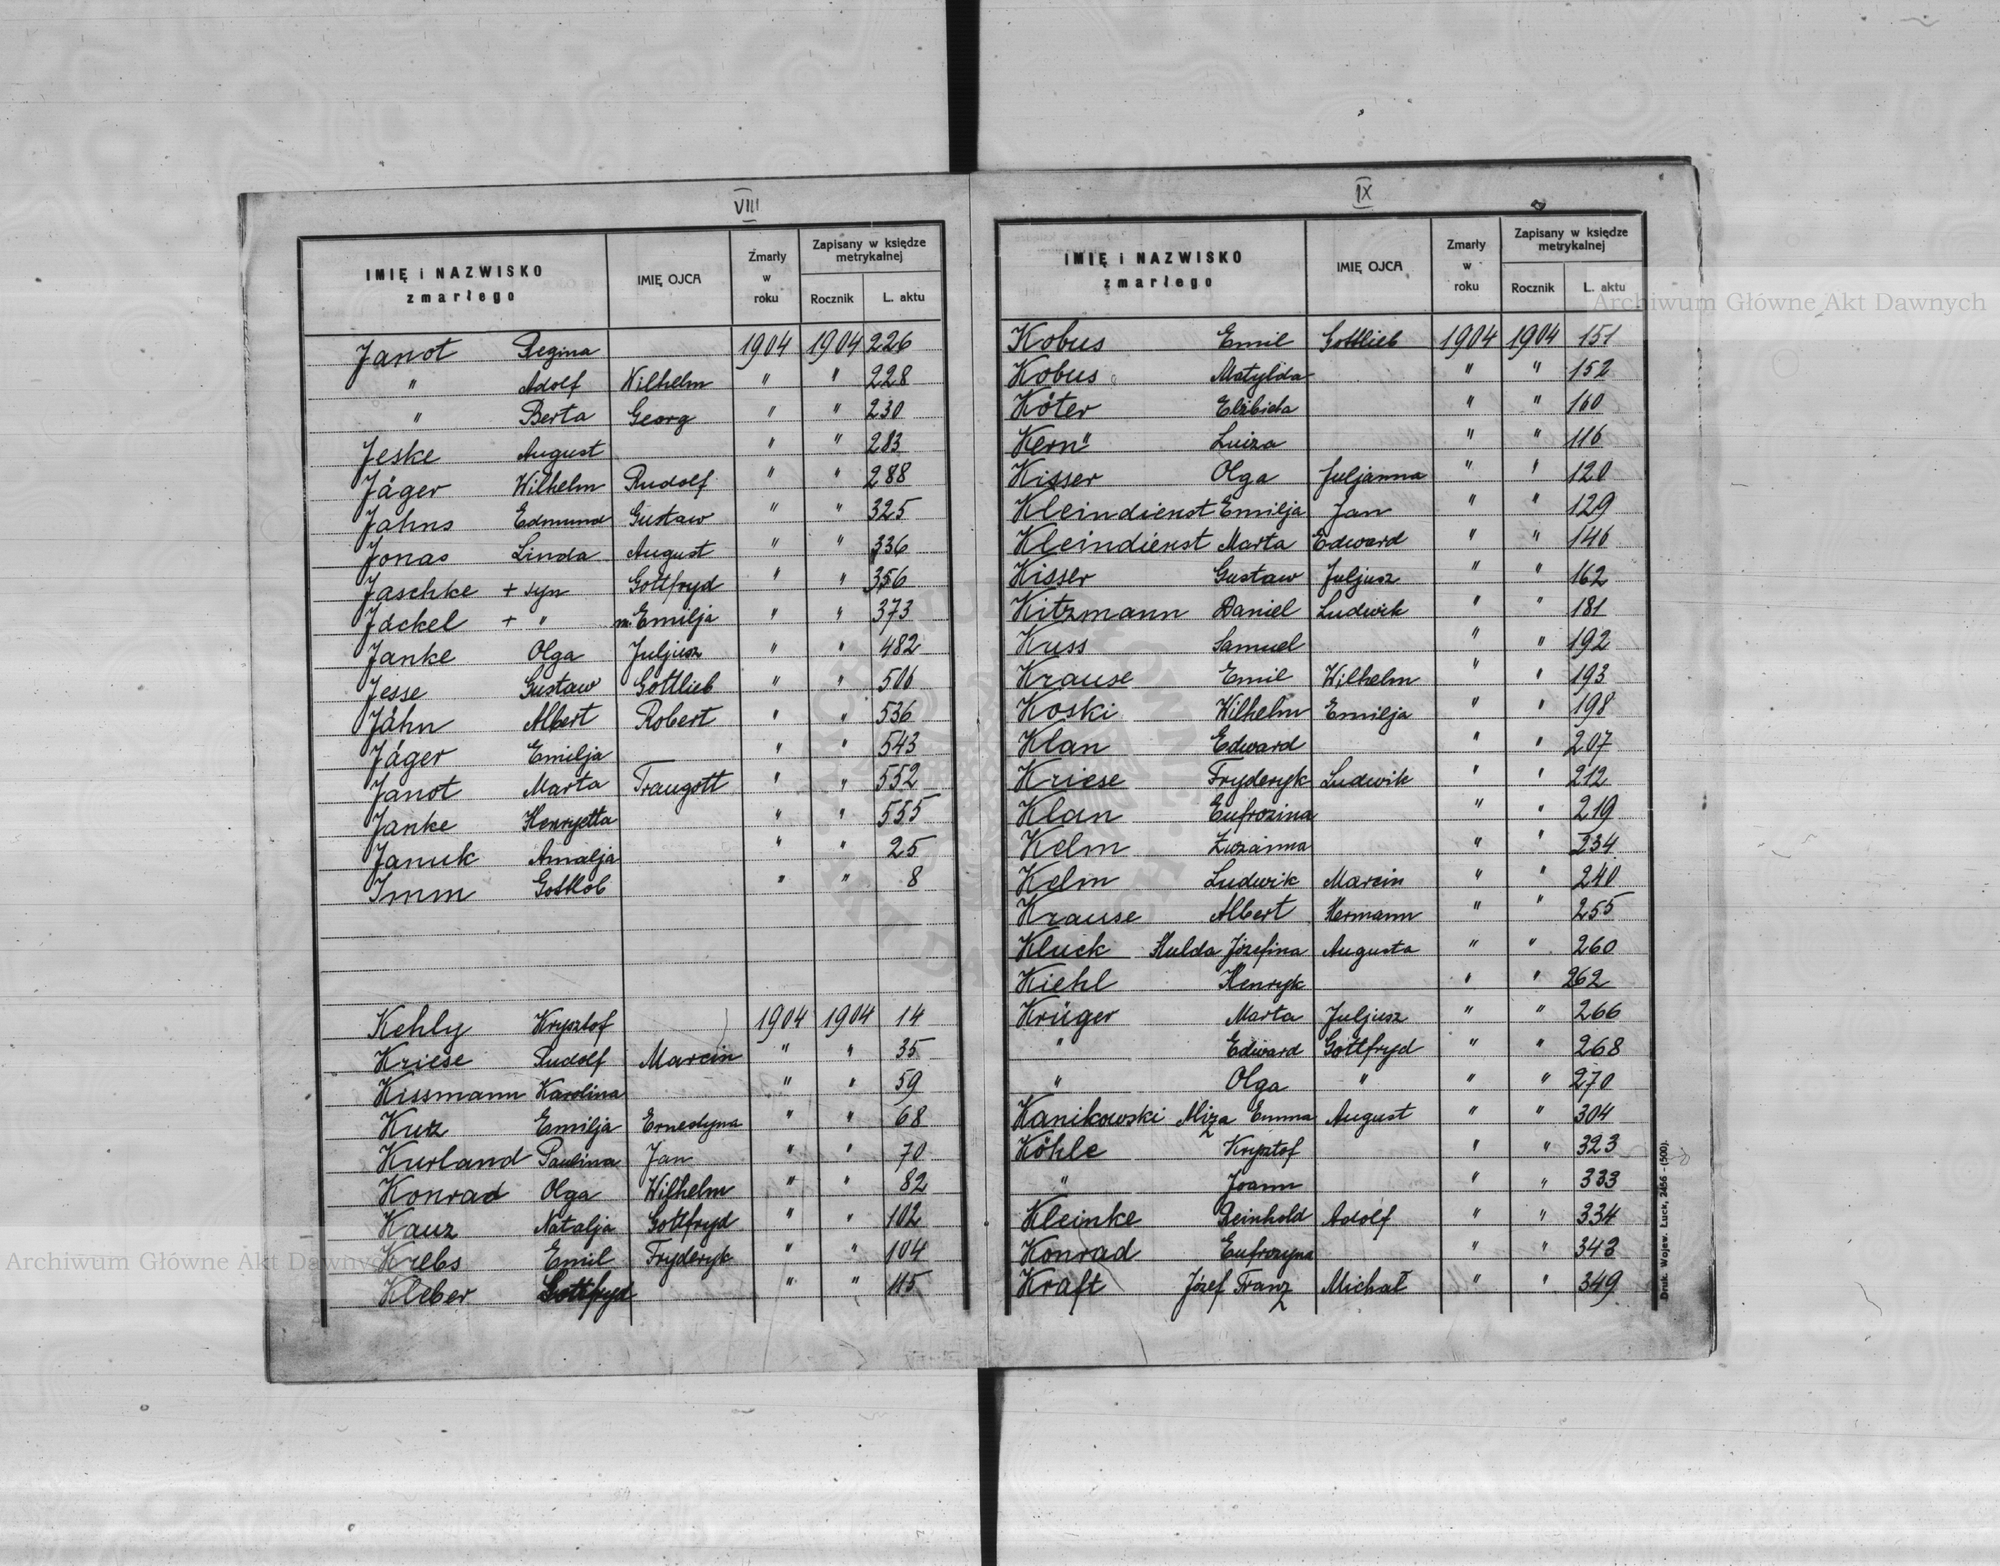 VIII
IMIĘ i NAZWISKO zmarłego IMIĘ OJCA Zmarły w roku Zapisany w księdze metrykalnej Rocznik L. aktu
Janot Regina 1904 1904 226
" Adolf Wilhelm " " 228
" Berta Georg " " 230
Jeske August " " 283
Jäger Wilhelm Rudolf " " 288
Jahns Edmund Gustaw " " 325
Jonas Linda August " " 336
Jaschke + syn Gottfryd " " 356
Jäckel + " m. Emilja " " 373
Janke Olga Juljusz " " 482
Jesse Gustaw Gottlieb " " 506
Jähn Albert Robert " " 536
Jäger Emilja " " 543
Janot Marta Traugott " " 552
Janke Henryetta " " 555
Januk Amalja " " 25
Imm Gottlob " " 8
Kehly Krysztof 1904 1904 14
Kriese Rudolf Marcin " " 35
Kissmann Karolina " " 59
Kuz Emilja Ernestyna " " 68
Kurland Paulina Jan " " 70
Konrad Olga Wilhelm " " 82
Kauz Natalja Gottfryd " " 102
Krebs Emil Fryderyk " " 104
Kleber Gottfryd " " 115
IX
IMIĘ i NAZWISKO zmarłego IMIĘ OJCA Zmarły w roku Zapisany w księdze metrykalnej Rocznik L. aktu
Kobus Emil Gottlieb 1904 1904 151
Kobus Matylda " " 152
Köter Elżbieta " " 160
Kern Luiza " " 116
Kisser Olga Juljanna " " 120
Kleindienst Emilja Jan " " 129
Kleindienst Marta Edward " " 146
Kisser Gustaw Juljusz " " 162
Kitzmann Daniel Ludwik " " 181
Kuss Samuel " " 192
Krause Emil Wilhelm " " 193
Koski Wilhelm Emilja " " 198
Klan Edward " " 207
Kriese Fryderyk Ludwik " " 212
Klan Eufrozina " " 219
Kelm Zuzanna " " 234
Kelm Ludwik Marcin " " 240
Krause Albert Hermann " " 255
Kluck Hulda Józefina Augusta " " 260
Kiehl Henryk " " 262
Krüger Marta Juljusz " " 266
" Edward Gottfryd " " 268
" Olga " " " 270
Kanikowski Aliza Emma August " " 304
Köhle Krysztof " " 323
" Joann " " 333
Kleinke Reinhold Adolf " " 334
Konrad Eufrozyna " " 343
Kraft Józef Franz Michał " " 349
Druk. Wojew. Łuck, 2456 - (500).
Archiwum Główne Akt Dawnych
Archiwum Główne Akt Dawnych